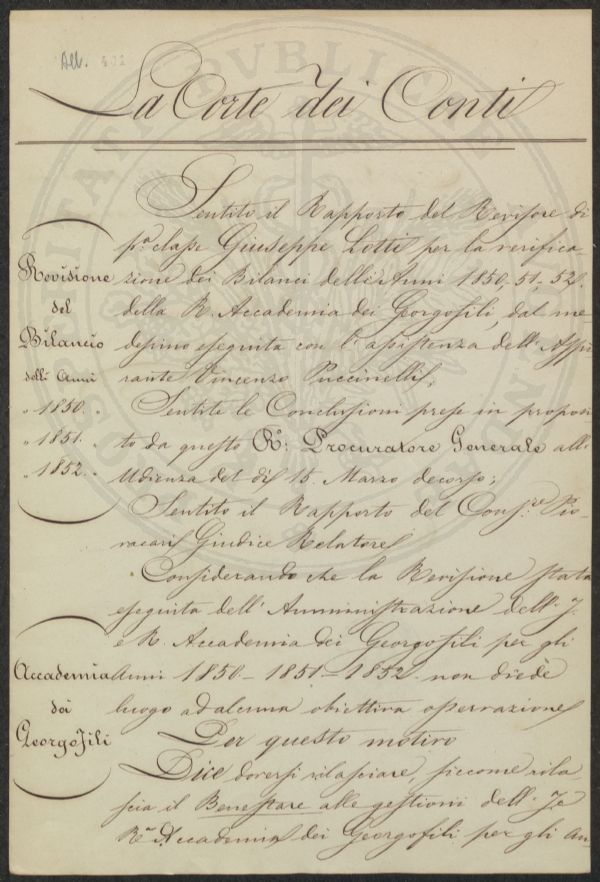 All. 401
La Corte dei Conti
Sentito il Rapporto del Revisore di
pa classe Giuseppe Lotti per la verifica-
zione dei Bilanci delli Anni 1850. 51, 52.
della R. Accademia dei Georgofili, dal me-
desimo eseguita con l'assistenza dell'Aspi-
rante Vincenzo Puccinelli;
Sentite le Conclusioni prese in proposi-
to da questo Ro: Procuratore Generale all'
Udienza del dì 15. Marzo decorso;
Sentito il Rapporto del Consre
Giudice Relatore
Considerando che la Revisione stata
eseguita dell'Amministrazione dell'I.
e R. Accademia dei Georgofili per gli
Anni 1850 - 1851 - 1852. non diede
luogo ad alcuna obiettiva osservazione
Per questo motivo
Dice doversi rilasciare, siccome rila-
scia il Benestare alle gestioni dell'Ie
Ra Accademia dei Georgofili per gli An-
Revisione
del
Bilancio
delli Anni
" 1850. "
" 1851. "
" 1852. "
Accademia
dei
Georgofili